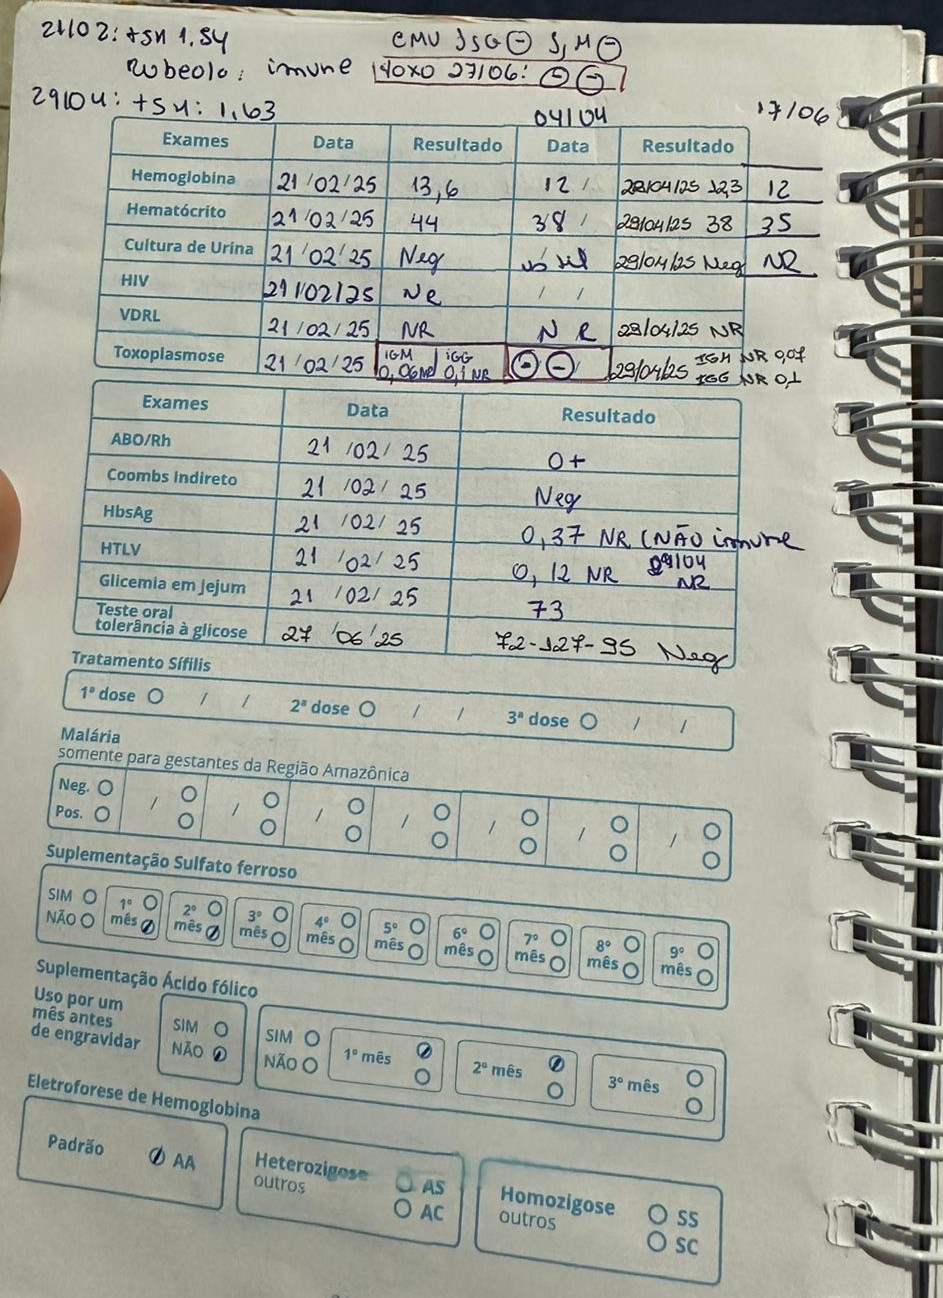 21/02: TSH 1,54 CMV IgG ⊖ IgM ⊖
Rubeola: imune Toxo 27/06: ⊖ ⊖
29/04: TSH: 1,63 04/04 17/06
Exames Data Resultado Data Resultado
Hemoglobina 21/02/25 13,6 12 / 29/04/25 12,3 12
Hematócrito 21/02/25 44 38 / 29/04/25 38 35
Cultura de Urina 21/02/25 Neg 29/04/25 Neg NR
HIV 21/02/25 NR / /
VDRL 21/02/25 NR NR 29/04/25 NR
Toxoplasmose 21/02/25 IGM 0,06 NR IGG 0,1 NR ⊖ ⊖ 29/04/25 IGM NR 0,07
IGG NR 0,1
Exames Data Resultado
ABO/Rh 21/02/25 O+
Coombs Indireto 21/02/25 Neg
HbsAg 21/02/25 0,37 NR (NÃO imune
HTLV 21/02/25 0,12 NR 29/04 NR
Glicemia em Jejum 21/02/25 73
Teste oral
tolerância à glicose 27/06/25 72-127-95 Neg
Tratamento Sífilis
1ª dose / / 2ª dose / / 3ª dose / /
Malária
somente para gestantes da Região Amazônica
Neg. / / / / / / /
Pos.
Suplementação Sulfato ferroso
SIM NÃO 1º mês 2º mês 3º mês 4º mês 5º mês 6º mês 7º mês 8º mês 9º mês
Suplementação Ácido fólico
Uso por um
mês antes
de engravidar
SIM NÃO SIM NÃO 1º mês 2º mês 3º mês
Eletroforese de Hemoglobina
Padrão AA
Heterozigose AS
outros AC
Homozigose SS
outros SC